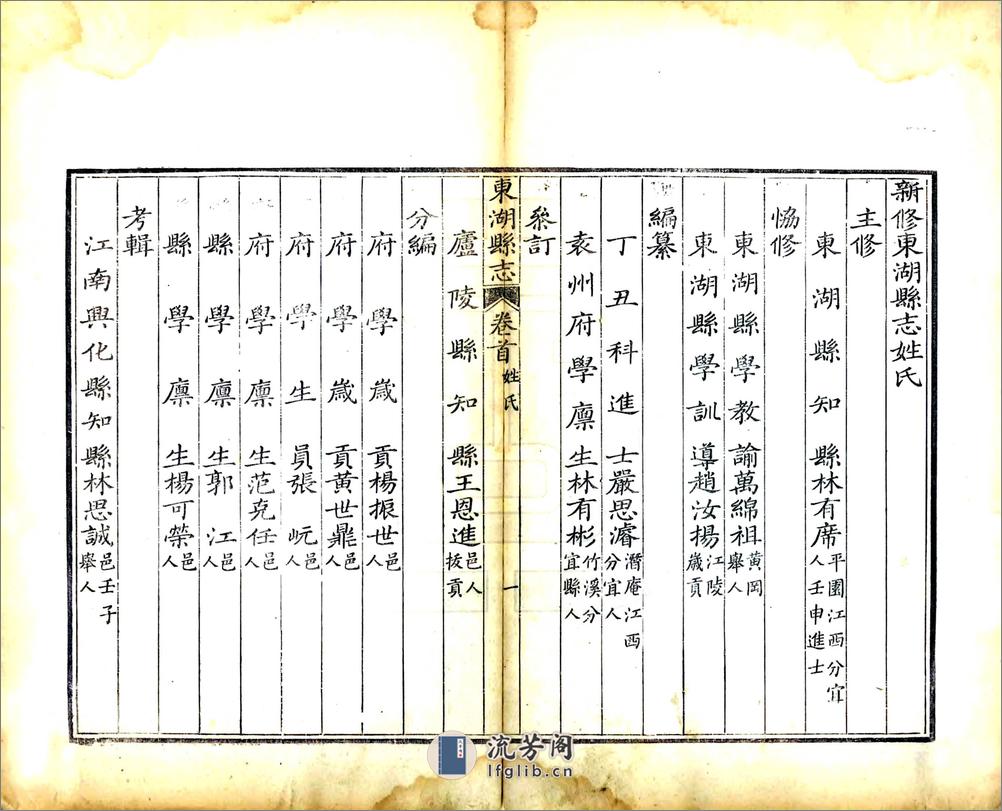 新修東湖縣志姓氏
主修
東湖縣知縣林有席平園江西分宜人壬申進士
協修
東湖縣學教諭萬綿祖黃岡舉人
東湖縣學訓導趙汝揚江陵歲貢
編纂
丁丑科進士嚴思濬潛庵江西分宜人
袁州府學廩生林有彬竹溪分宜縣人
叅訂
東湖縣志 卷首 姓氏 一
廬陵縣知縣王恩進邑人拔貢
分編
府學歲貢楊振世邑人
府學歲貢黃世鼎邑人
府學生員張岏邑人
府學廩生范克任邑人
縣學廩生郭江邑人
縣學廩生楊可榮邑人
考輯
江南興化縣知縣林思誠邑壬子舉人
流芳阁
lfglib.cn